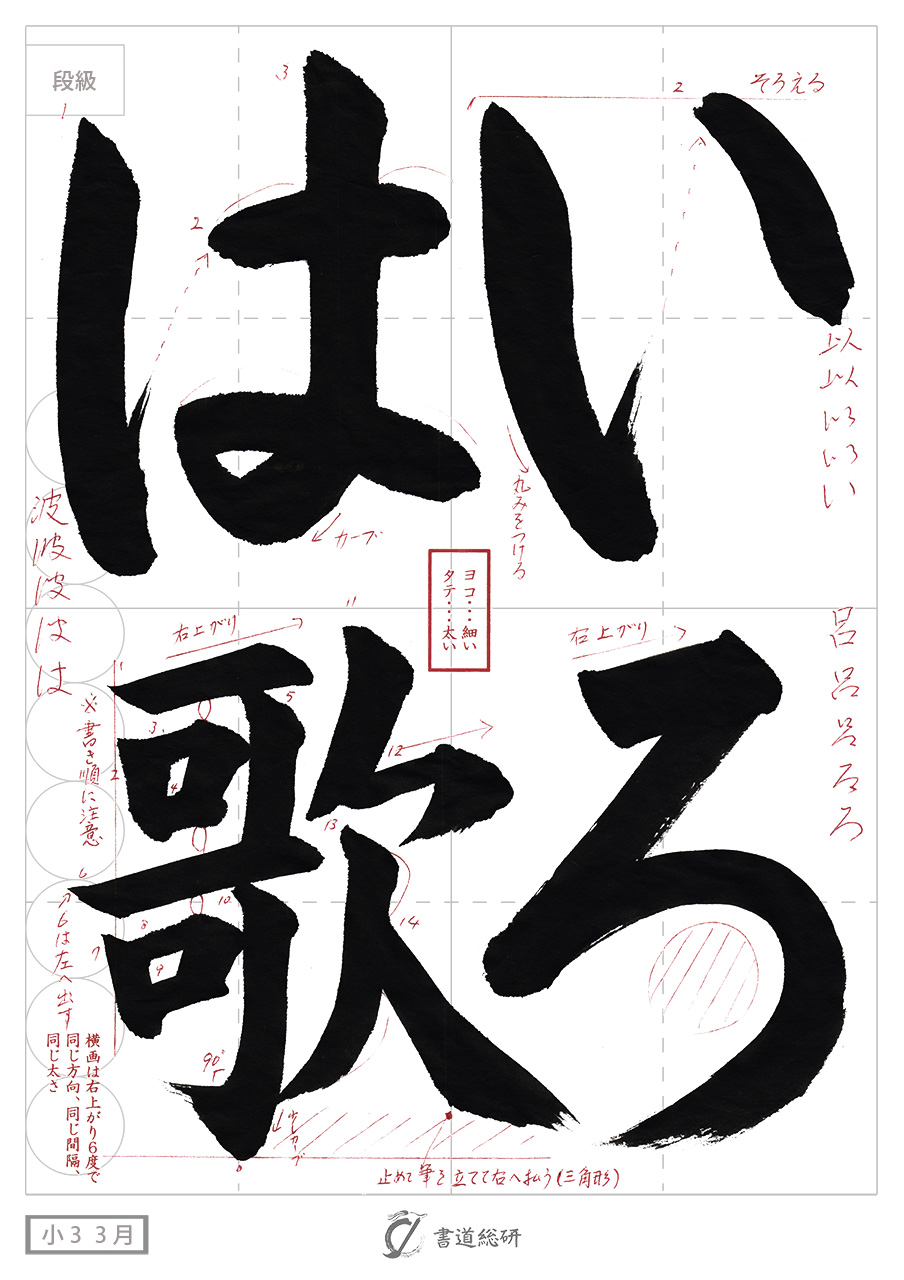 段級
いろ
は歌
そろえる
1
2
3
2
以
以
いろ
いろ
い
丸みをつける
カーブ
波
波
波
は
は
ヨコ・・・細い
タテ・・・太い
右上がり
右上がり
呂
呂
呂
ろ
ろ
1
2
3
4
5
6
7
8
9
10
11
12
13
14
※書き順に注意
6は左へ出す
横画は右上がり6度で
同じ方向、同じ間隔、
同じ太さ
90°
少しカーブ
止めて筆を立てて右へ払う(三角形)
小3 3月
書道総研